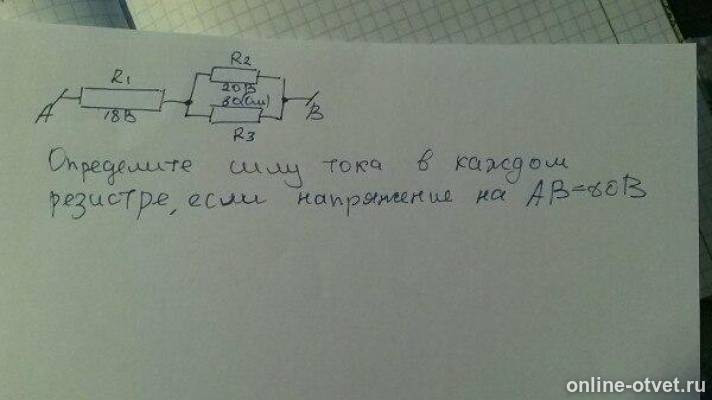 R2
R1
20В
80(Ом)
A
18В
B
R3
Определите силу тока в каждом
резистре, если напряжение на AB=80В
online-otvet.ru